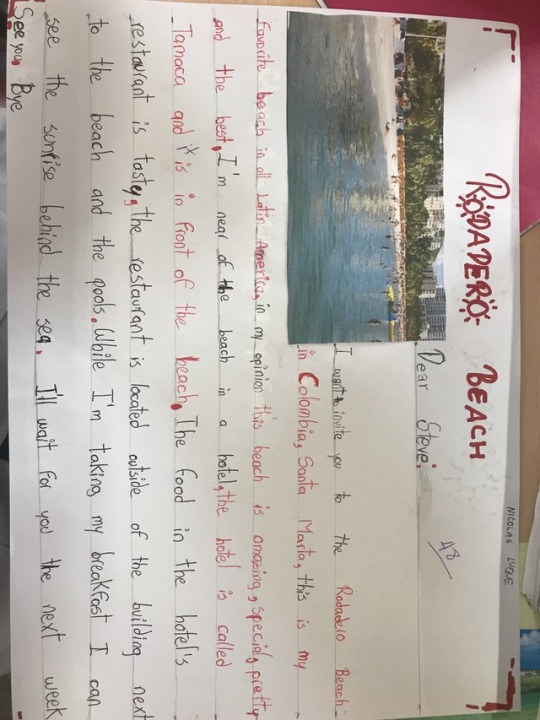 NICOLAS LUQUE
RODADERO BEACH
48
Dear Steve:
I want to invite you to the Rodadero Beach
in Colombia, Santa Marta, this is my
favorite beach in all Latin America, in my opinion this beach is amazing, special, pretty
and the best. I'm near of the beach in a hotel, the hotel is called
Tamaca and it is in front of the beach. The food in the hotel's
restaurant is tastey, the restaurant is located outside of the building next
to the beach and the pools. While I'm taking my breakfast I can
see the sunrise behind the sea. I'll wait for you the next week
See you, Bye